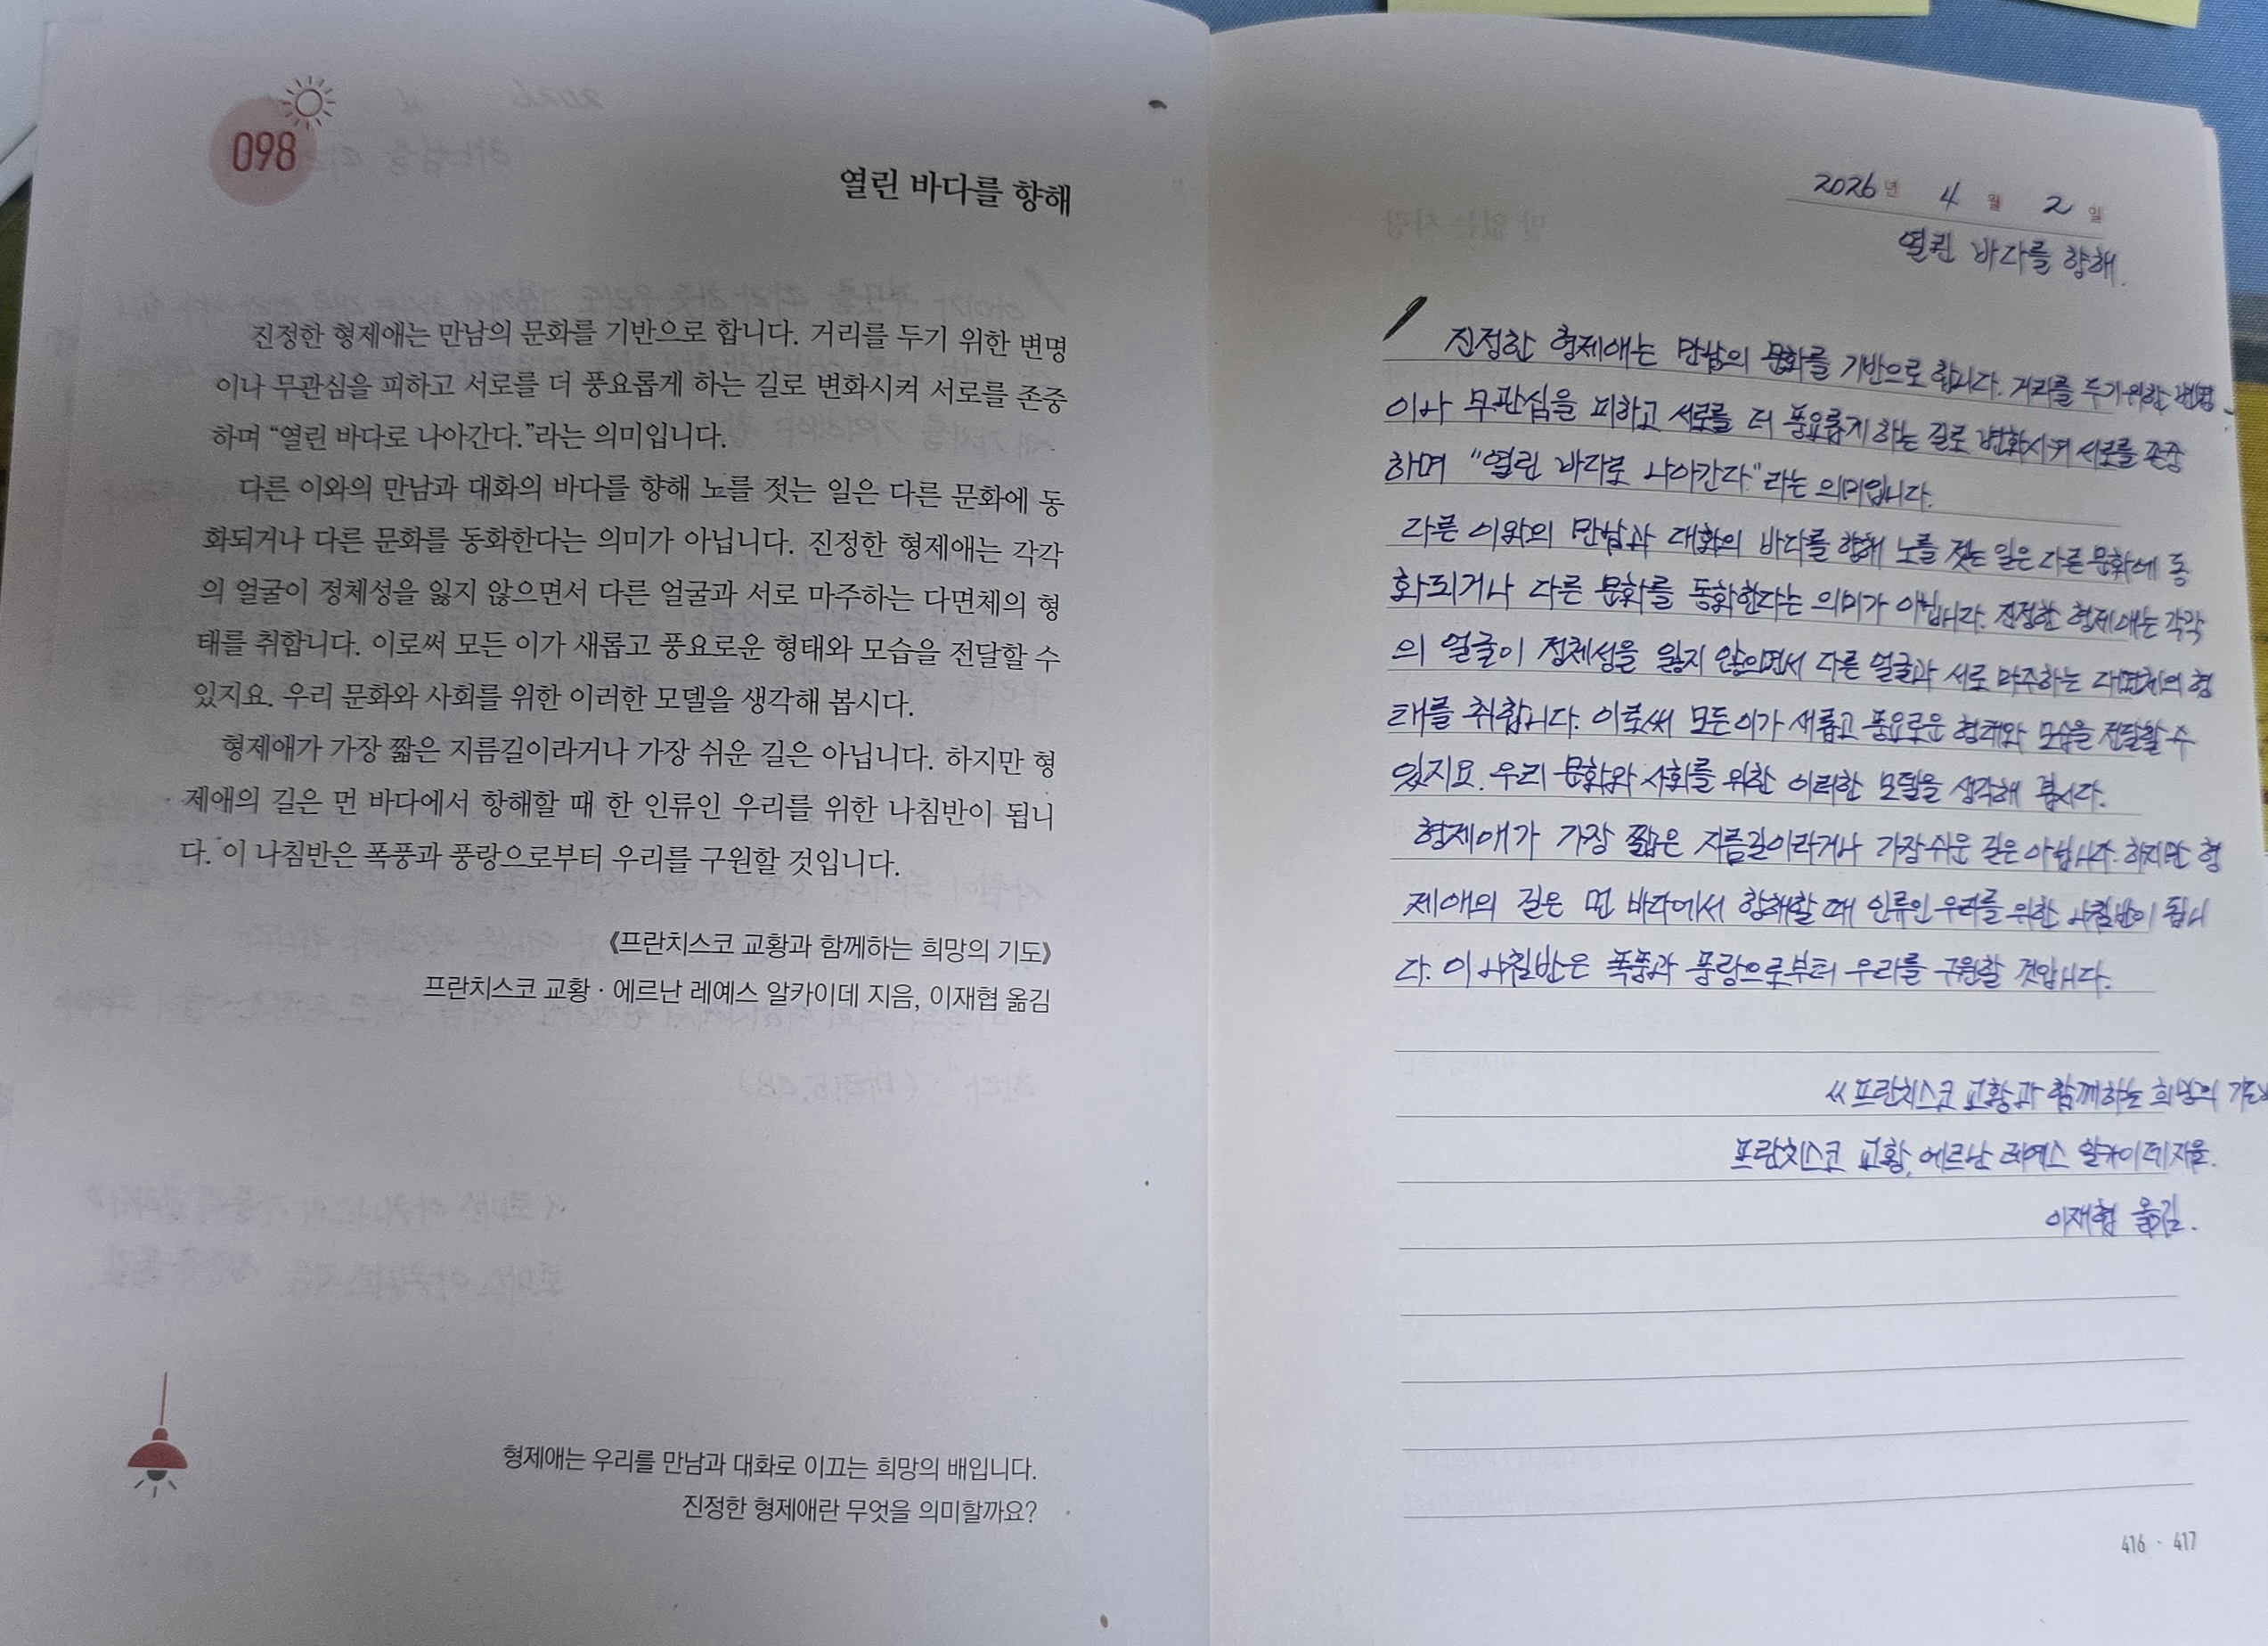 098
열린 바다를 향해
진정한 형제애는 만남의 문화를 기반으로 합니다. 거리를 두기 위한 변명
이나 무관심을 피하고 서로를 더 풍요롭게 하는 길로 변화시켜 서로를 존중
하며 “열린 바다로 나아간다.”라는 의미입니다.
다른 이와의 만남과 대화의 바다를 향해 노를 젓는 일은 다른 문화에 동
화되거나 다른 문화를 동화한다는 의미가 아닙니다. 진정한 형제애는 각각
의 얼굴이 정체성을 잃지 않으면서 다른 얼굴과 서로 마주하는 다면체의 형
태를 취합니다. 이로써 모든 이가 새롭고 풍요로운 형태와 모습을 전달할 수
있지요. 우리 문화와 사회를 위한 이러한 모델을 생각해 봅시다.
형제애가 가장 짧은 지름길이라거나 가장 쉬운 길은 아닙니다. 하지만 형
제애의 길은 먼 바다에서 항해할 때 한 인류인 우리를 위한 나침반이 됩니
다. 이 나침반은 폭풍과 풍랑으로부터 우리를 구원할 것입니다.
《프란치스코 교황과 함께하는 희망의 기도》
프란치스코 교황 · 에르난 레예스 알카이데 지음, 이재협 옮김
형제애는 우리를 만남과 대화로 이끄는 희망의 배입니다.
진정한 형제애란 무엇을 의미할까요?
2026년 4월 2일
열린 바다를 향해.
진정한 형제애는 만남의 문화를 기반으로 합니다. 거리를 두기 위한 변명
이나 무관심을 피하고 서로를 더 풍요롭게 하는 길로 변화시켜 서로를 존중
하며 “열린 바다로 나아간다.”라는 의미입니다.
다른 이와의 만남과 대화의 바다를 향해 노를 젓는 일은 다른 문화에 동
화되거나 다른 문화를 동화한다는 의미가 아닙니다. 진정한 형제애는 각각
의 얼굴이 정체성을 잃지 않으면서 다른 얼굴과 서로 마주하는 다면체의 형
태를 취합니다. 이로써 모든 이가 새롭고 풍요로운 형태와 모습을 전달할 수
있지요. 우리 문화와 사회를 위한 이러한 모델을 생각해 봅시다.
형제애가 가장 짧은 지름길이라거나 가장 쉬운 길은 아닙니다. 하지만 형
제애의 길은 먼 바다에서 항해할 때 인류인 우리를 위한 나침반이 됩니
다. 이 나침반은 폭풍과 풍랑으로부터 우리를 구원할 것입니다.
《프란치스코 교황과 함께하는 희망의 기도
프란치스코 교황, 에르난 레예스 알카이데 지음.
이재협 옮김.
416 · 417